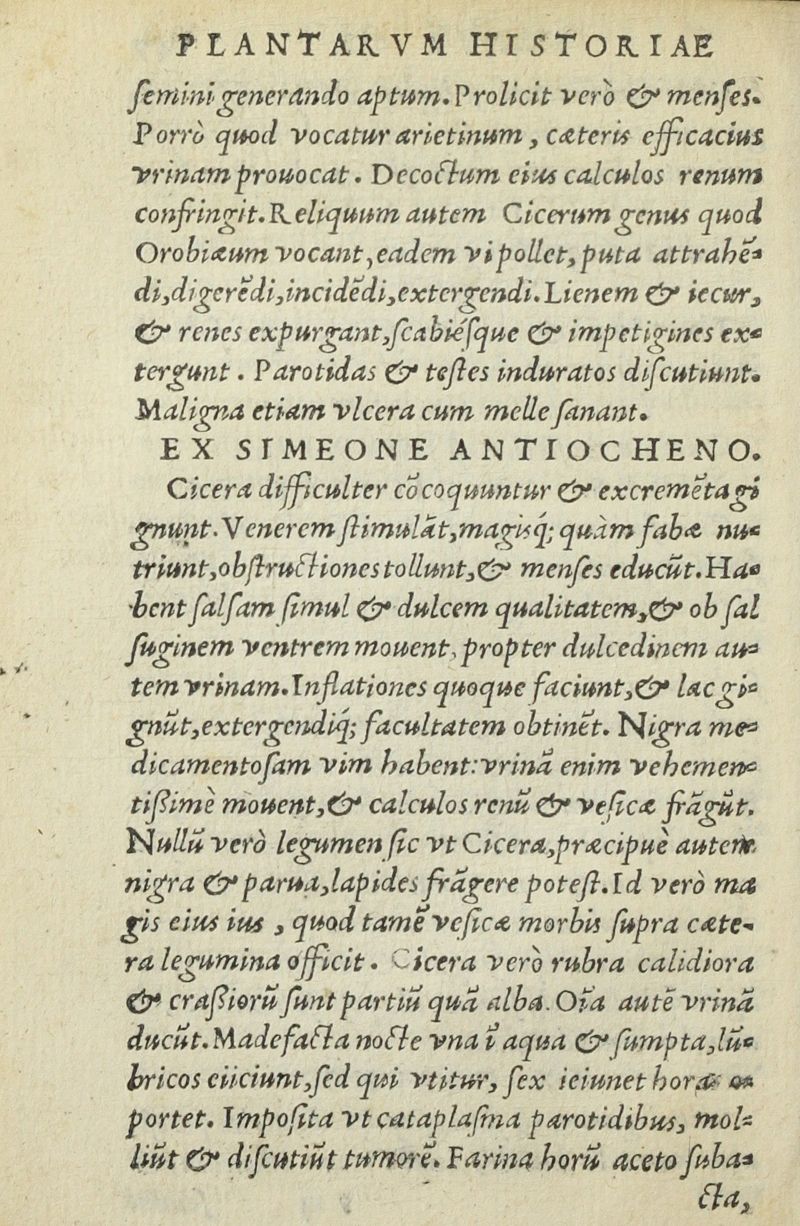 PLANTARVM HISTORIAE
ſemini generando aptum. Prolicit verò & menſes.
Porrò quod vocatur arietinum, cæteris efficacius
vrinam prouocat. Decoctum eius calculos renum
confringit. Reliquum autem Cicerum genus quod
Orobiæum vocant, eadem vi pollet, puta attrahẽ-
di, digerẽdi, incidẽdi, extergendi. Lienem & iecur,
& renes expurgant, ſcabiéſque & impetigines ex-
tergunt. Parotidas & teſtes induratos diſcutiunt.
Maligna etiam vlcera cum melle ſanant.
EX SIMEONE ANTIOCHENO.
Cicera difficulter cõcoquuntur & excremẽta gi
gnunt. Venerem ſtimulãt, magiſq́; quàm fabæ nu-
triunt, obſtructiones tollunt, & menſes educũt. Ha-
bent ſalſam ſimul & dulcem qualitatem, & ob ſal
ſuginem ventrem mouent, propter dulcedinem au-
tem vrinam. Inflationes quoque faciunt, & lac gi-
gnũt, extergendiq́; facultatem obtinẽt. Nigra me-
dicamentoſam vim habent: vrinã enim vehemen-
tißimè mouent, & calculos renũ & veſicæ frãgũt.
Nullũ verò legumen ſic vt Cicera, præcipuè autem
nigra & parua, lapides frãgere poteſt. Id verò ma
gis eius ius, quod tamẽ veſicæ morbis ſupra cæte-
ra legumina officit. Cicera verò rubra calidiora
& craßiorũ ſunt partiũ quã alba. Oĩa autẽ vrinã
ducũt. Madefacta nocte vna ĩ aqua & ſumpta, lũ-
bricos eiiciunt, ſed qui vtitur, ſex ieiunet horas o-
portet. Impoſita vt cataplaſma parotidibus, mol-
liũt & diſcutiũt tumorẽ. Farina horũ aceto ſuba-
cta,